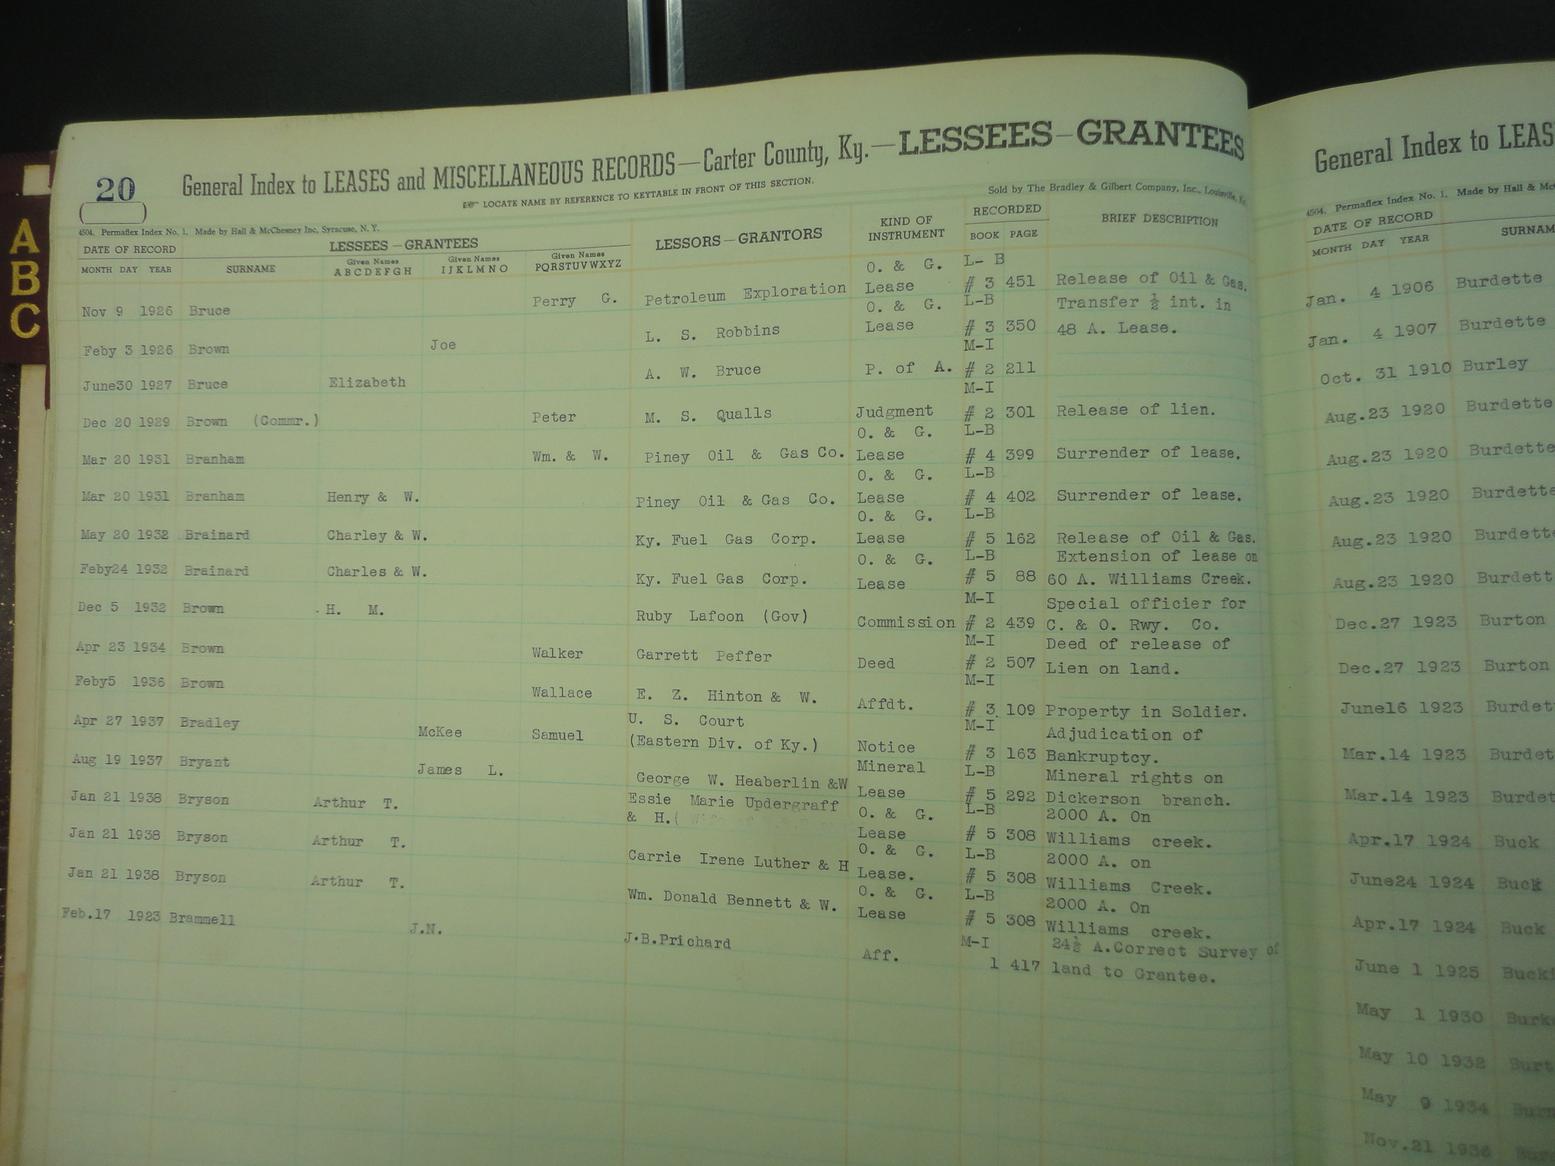 A
B
C
20
General Index to LEASES and MISCELLANEOUS RECORDS—Carter County, Ky.—LESSEES—GRANTEES
☞ LOCATE NAME BY REFERENCE TO KEYTABLE IN FRONT OF THIS SECTION.
4504. Permaflex Index No. 1. Made by Hall & McChesney Inc, Syracuse, N. Y.
Sold by The Bradley & Gilbert Company, Inc., Louisville, Ky.
DATE OF RECORD LESSEES—GRANTEES LESSORS—GRANTORS KIND OF INSTRUMENT RECORDED BRIEF DESCRIPTION
MONTH DAY YEAR SURNAME Given Names ABCDEFGH Given Names IJKLMNO Given Names PQRSTUVWXYZ BOOK PAGE
Nov 9 1926 Bruce Perry G. Petroleum Exploration O. & G. Lease L-B # 3 451 Release of Oil & Gas.
Feby 3 1926 Brown Joe L. S. Robbins O. & G. Lease L-B # 3 350 Transfer ½ int. in 48 A. Lease.
June30 1927 Bruce Elizabeth A. W. Bruce P. of A. M-I # 2 211
Dec 20 1929 Brown (Commr.) Peter M. S. Qualls Judgment M-I # 2 301 Release of lien.
Mar 20 1931 Branham Wm. & W. Piney Oil & Gas Co. O. & G. Lease L-B # 4 399 Surrender of lease.
Mar 20 1931 Branham Henry & W. Piney Oil & Gas Co. O. & G. Lease L-B # 4 402 Surrender of lease.
May 20 1932 Brainard Charley & W. Ky. Fuel Gas Corp. O. & G. Lease L-B # 5 162 Release of Oil & Gas.
Feby24 1932 Brainard Charles & W. Ky. Fuel Gas Corp. O. & G. Lease L-B # 5 88 Extension of lease on 60 A. Williams Creek.
Dec 5 1932 Brown H. M. Ruby Lafoon (Gov) Commission M-I # 2 439 Special officier for C. & O. Rwy. Co.
Apr 23 1934 Brown Walker Garrett Peffer Deed M-I # 2 507 Deed of release of Lien on land.
Feby5 1936 Brown Wallace E. Z. Hinton & W. Affdt. M-I # 3. 109 Property in Soldier.
Apr 27 1937 Bradley McKee Samuel U. S. Court (Eastern Div. of Ky.) Notice M-I # 3 163 Adjudication of Bankruptcy.
Aug 19 1937 Bryant James L. George W. Heaberlin &W Mineral Lease L-B # 5 292 Mineral rights on Dickerson branch.
Jan 21 1938 Bryson Arthur T. Essie Marie Updergraff & H.( O. & G. Lease L-B # 5 308 2000 A. On Williams creek.
Jan 21 1938 Bryson Arthur T. Carrie Irene Luther & H O. & G. Lease. L-B # 5 308 2000 A. on Williams Creek.
Jan 21 1938 Bryson Arthur T. Wm. Donald Bennett & W. O. & G. Lease L-B # 5 308 2000 A. On Williams creek.
Feb.17 1923 Brammell J.N. J.B.Prichard Aff. M-I 1 417 24½ A.Correct Survey of land to Grantee.
General Index to LEAS
4504. Permaflex Index No. 1. Made by Hall & Mc
DATE OF RECORD
MONTH DAY YEAR SURNAM
Jan. 4 1906 Burdette
Jan. 4 1907 Burdette
Oct. 31 1910 Burley
Aug.23 1920 Burdette
Aug.23 1920 Burdette
Aug.23 1920 Burdette
Aug.23 1920 Burdett
Aug.23 1920 Burdett
Dec.27 1923 Burton
Dec.27 1923 Burton
June16 1923 Burdet
Mar.14 1923 Burdet
Mar.14 1923 Burdet
Apr.17 1924 Buck
June24 1924 Buck
Apr.17 1924 Buck
June 1 1925 Buck
May 1 1930 Burk
May 10 1932 Burt
May 9 1934 Burn
Nov.21 1936